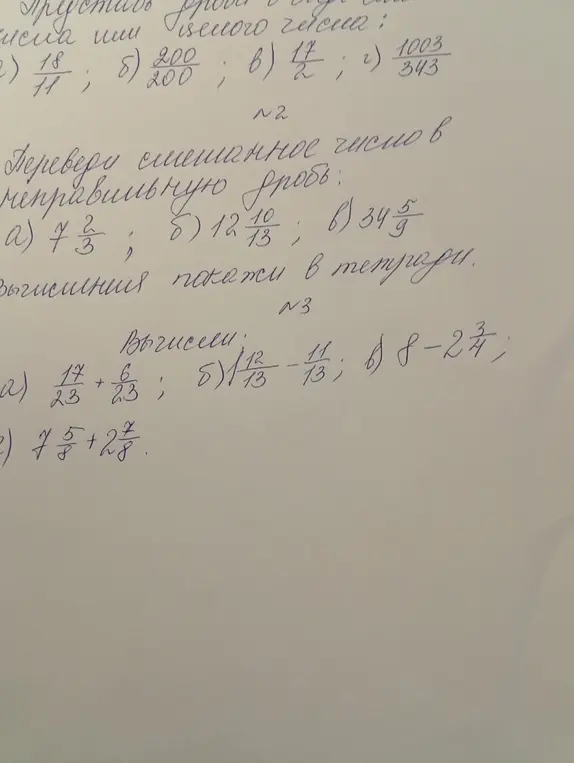 Представь дроби в виде
числа или целого числа:
а) 18/11 ; б) 200/200 ; в) 17/2 ; г) 1003/343
№2
Переведи смешанное число в
неправильную дробь:
а) 7 2/3 ; б) 12 10/13 ; в) 34 5/9
Вычисления покажи в тетради.
№3
Вычисли:
а) 17/23 + 6/23 ; б) 12/13 - 11/13 ; в) 8 - 2 3/4 ;
г) 7 5/8 + 2 7/8 .